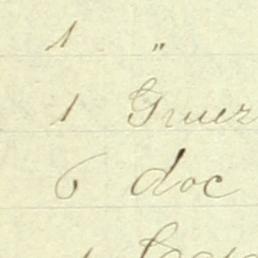 1 "
1 Gruez
6 doc